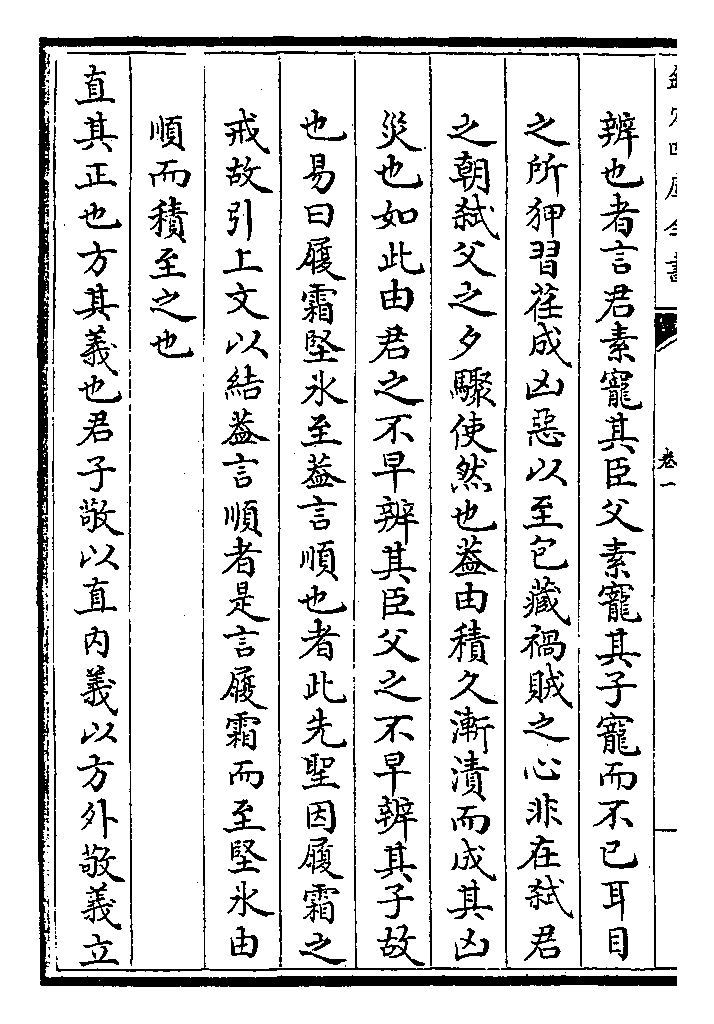 欽定四庫全書
卷一
辨也者言君素寵其臣父素寵其子寵而不已耳目
之所狎習荏成凶惡以至包藏禍賊之心非在弑君
之朝弑父之夕驟使然也葢由積久漸漬而成其凶
災也如此由君之不早辨其臣父之不早辨其子故
也易曰履霜堅氷至葢言順也者此先聖因履霜之
戒故引上文以結葢言順者是言履霜而至堅氷由
順而積至之也
直其正也方其義也君子敬以直内義以方外敬義立